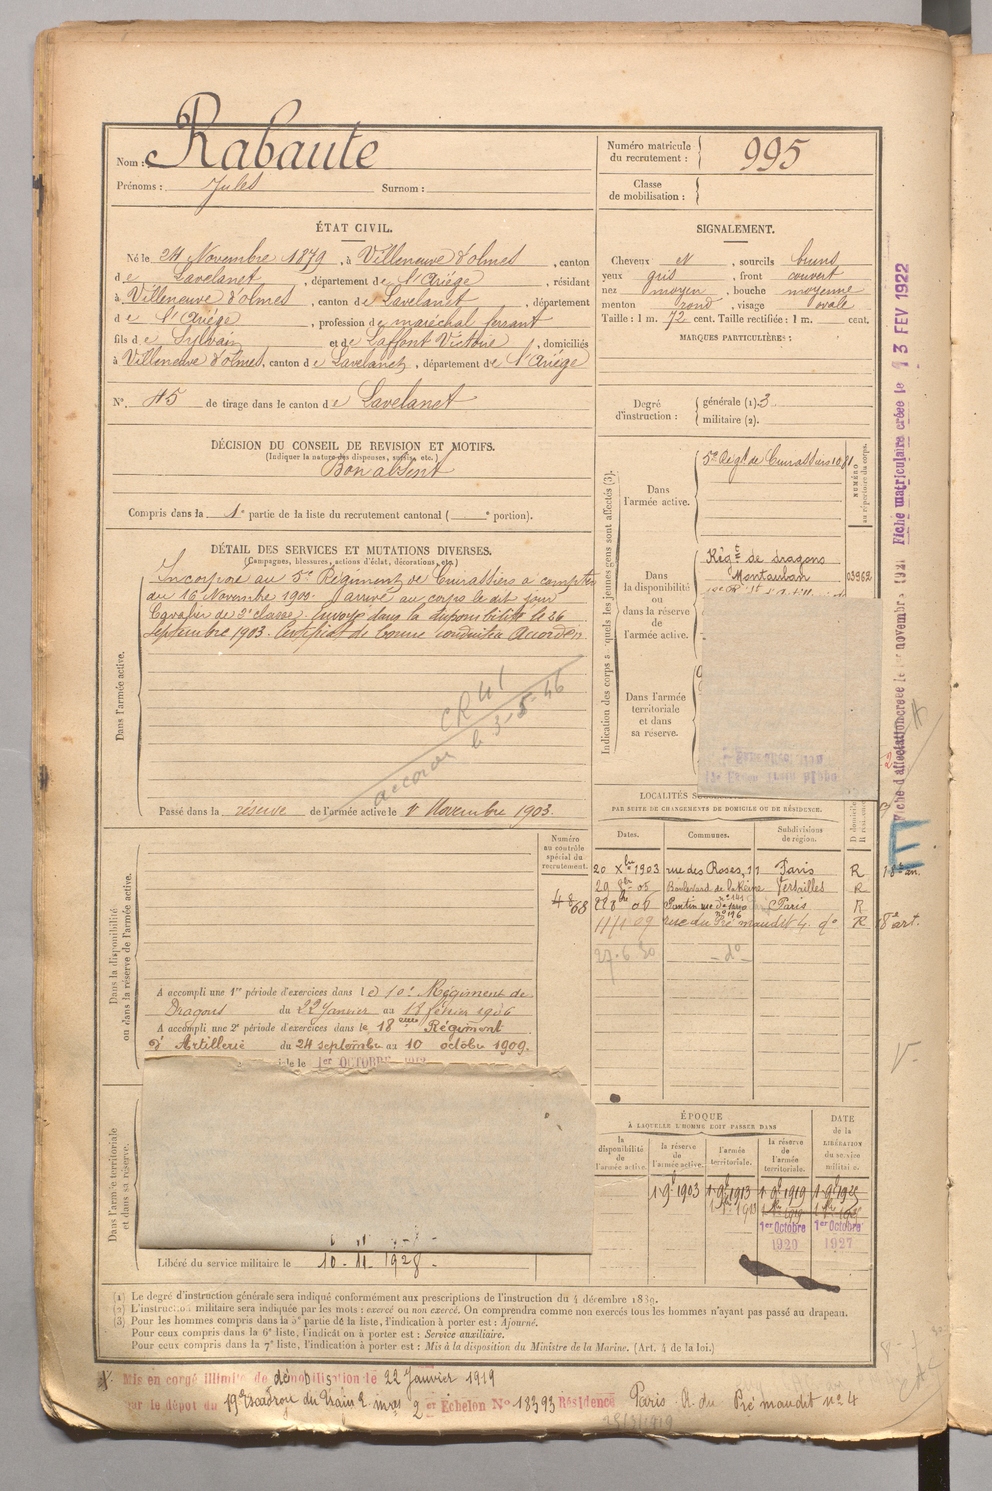 Nom : Rabaute
Prénoms : Jules Surnom :
Numéro matricule du recrutement : 995
Classe de mobilisation :
ÉTAT CIVIL.
Né le 24 Novembre 1879, à Villeneuve d'olmes, canton
de Lavelanet, département de l'Ariége, résidant
à Villeneuve d'olmes, canton de Lavelanet, département
de l'Ariége, profession de maréchal ferrant
fils de Sylvain et de Laffont Victorie, domiciliés
à Villeneuve d'olmes, canton de Lavelanet, département de l'Ariége
N° 45 de tirage dans le canton de Lavelanet
SIGNALEMENT.
Cheveux N, sourcils bruns
yeux gris, front couvert
nez moyen, bouche moyenne
menton rond, visage ovale
Taille : 1 m. 72 cent. Taille rectifiée : 1 m. cent.
MARQUES PARTICULIÈRES :
Degré d'instruction : générale (1). 3
militaire (2).
DÉCISION DU CONSEIL DE REVISION ET MOTIFS.
(Indiquer la nature des dispenses, sursis, etc.)
Bon absent
Compris dans la 1e partie de la liste du recrutement cantonal ( e portion).
DÉTAIL DES SERVICES ET MUTATIONS DIVERSES.
(Campagnes, blessures, actions d'éclat, décorations, etc.)
Dans l'armée active.
Incorporé au 5e Régiment de Cuirassiers à compter
du 16 Novembre 1900. arrivé au corps le dit jour
Cavalier de 2e classe. Envoyé dans la disponibilité le 26
septembre 1903. Certificat de bonne conduite Accordé.
accordé le 3-5-46
Passé dans la réserve de l'armée active le 1r Novembre 1903.
Indication des corps auxquels les jeunes gens sont affectés (3).
NUMÉRO au répertoire du corps.
Dans l'armée active.
5e Régt de Cuirassiers 1081
Dans la disponibilité ou dans la réserve de l'armée active.
Régt de dragons
Montauban 03962
Dans l'armée territoriale et dans sa réserve.
LOCALITÉS
PAR SUITE DE CHANGEMENTS DE DOMICILE OU DE RÉSIDENCE.
Dates. Communes. Subdivisions de région. D domicile R
20 Xbre 1903 rue des Roses, 11 Paris R
29 8bre 05 Boulevard de la Reine Versailles R
Pantin Paris R
11/1/09 rue du Pré maudit 4. do R
27.6.30 - do -
Numéro au contrôle spécial du recrutement.
Dans la disponibilité ou dans la réserve de l'armée active.
A accompli une 1re période d'exercices dans le 10e Régiment de
Dragons du 22 Janvier au 18 février 1906
A accompli une 2e période d'exercices dans le 18eme Régiment
d'Artillerie du 24 septembre au 10 octobre 1909.
1er OCTOBRE
Dans l'armée territoriale et dans sa réserve.
Libéré du service militaire le 10-11-1928-
ÉPOQUE
À LAQUELLE L'HOMME DOIT PASSER DANS
la disponibilité de l'armée active. la réserve de l'armée active. l'armée territoriale. la réserve de l'armée territoriale. DATE de la LIBÉRATION du service militaire.
1.9e 1903 1.9e 1913 1.9e 1919 1.9e 1925
1er Octobre 1920 1er Octobre 1927
(1) Le degré d'instruction générale sera indiqué conformément aux prescriptions de l'instruction du 4 décembre 1889.
(2) L'instruction militaire sera indiquée par les mots : exercé ou non exercé. On comprendra comme non exercés tous les hommes n'ayant pas passé au drapeau.
(3) Pour les hommes compris dans la 5e partie de la liste, l'indication à porter est : Ajourné.
Pour ceux compris dans la 6e liste, l'indication à porter est : Service auxiliaire.
Pour ceux compris dans la 7e liste, l'indication à porter est : Mis à la disposition du Ministre de la Marine. (Art. 4 de la loi.)
Mis en congé illimité de démobilisation le 22 Janvier 1919
par le dépôt du 19e Escadron du Train 2e Echelon N° 18393 Résidence Paris R. du Pré maudit n° 4
Fiche d'affectation créée le novembre 1921 Fiche matriculaire créée le 13 FEV 1922
E
18e art.